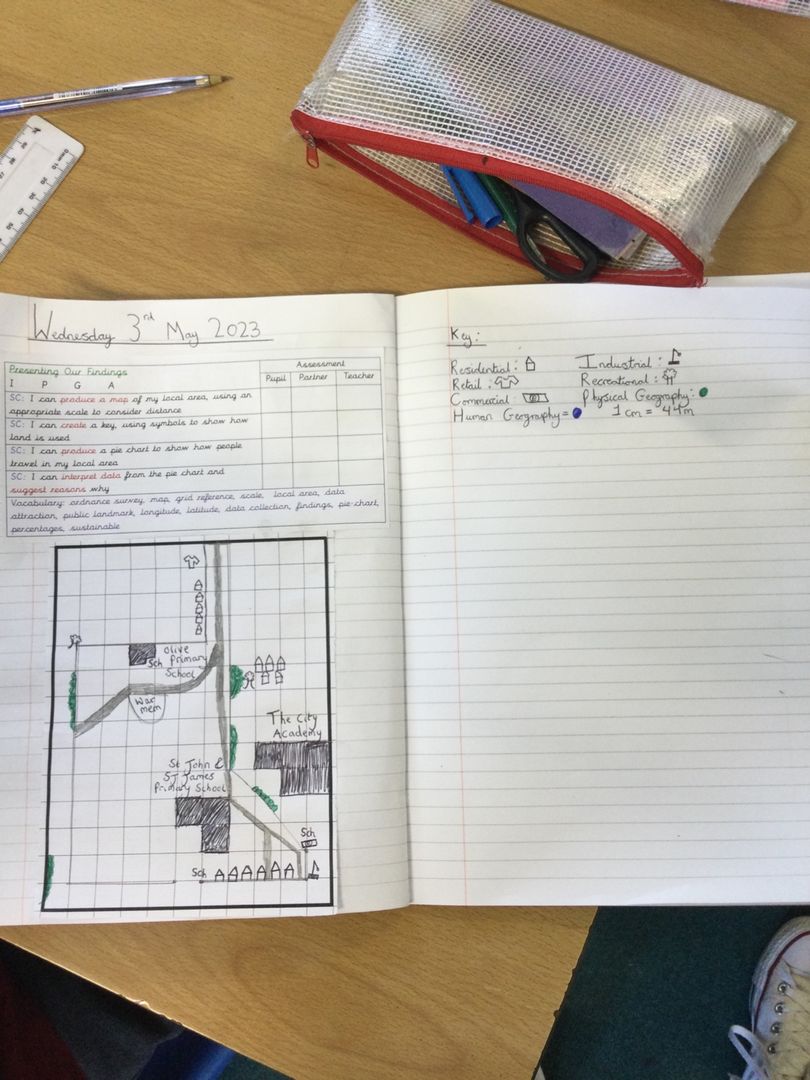 Wednesday 3rd May 2023
Presenting Our Findings
I P G A
Assessment
Pupil Partner Teacher
SC: I can produce a map of my local area, using an
appropriate scale to consider distance
SC: I can create a key, using symbols to show how
land is used
SC: I can produce a pie chart to show how people
travel in my local area
SC: I can interpret data from the pie chart and
suggest reasons why
Vocabulary: ordnance survey, map, grid reference, scale, local area, data
attraction, public landmark, longitude, latitude, data collection, findings, pie-chart,
percentages, sustainable
Sch
olive
Primary
School
War
mem
The City
Academy
St John &
ST James
Primary School
Sch
Sch
Key:
Residential:
Retail:
Commercial:
Human Geography=
Industrial:
Recreational:
Physical Geography:
1cm = 44m